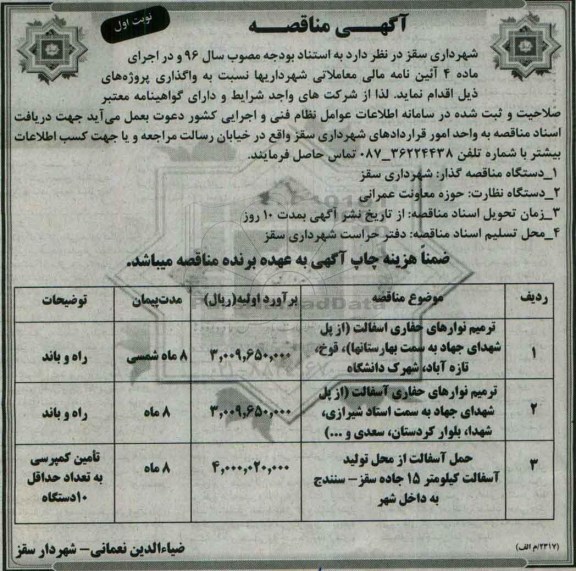 آگهـی مناقصه
نوبت اول
شهرداری سقز در نظر دارد به استناد بودجه مصوب سال ۹۶ و در اجرای
ماده ۴ آئین نامه مالی معاملاتی شهرداریها نسبت به واگذاری پروژه‌های
ذیل اقدام نماید. لذا از شرکت های واجد شرایط و دارای گواهینامه معتبر
صلاحیت و ثبت شده در سامانه اطلاعات عوامل نظام فنی و اجرایی کشور دعوت بعمل می‌آید جهت دریافت
اسناد مناقصه به واحد امور قراردادهای شهرداری سقز واقع در خیابان رسالت مراجعه و یا جهت کسب اطلاعات
بیشتر با شماره تلفن ۳۶۲۲۴۴۳۸_۰۸۷ تماس حاصل فرمایند.
۱_دستگاه مناقصه گذار: شهرداری سقز
۲_دستگاه نظارت: حوزه معاونت عمرانی
۳_زمان تحویل اسناد مناقصه: از تاریخ نشر آگهی بمدت ۱۰ روز
۴_محل تسلیم اسناد مناقصه: دفتر حراست شهرداری سقز
ضمناً هزینه چاپ آگهی به عهده برنده مناقصه میباشد.
ردیف موضوع مناقصه برآورد اولیه(ریال) مدت‌پیمان توضیحات
۱ ترمیم نوارهای حفاری آسفالت (از پل
شهدای جهاد به سمت بهارستانها)، قوخ،
تازه آباد، شهرک دانشگاه
۳,۰۰۹,۶۵۰,۰۰۰ ۸ ماه شمسی راه و باند
۲ ترمیم نوارهای حفاری آسفالت (از پل
شهدای جهاد به سمت استاد شیرازی،
شهدا، بلوار کردستان، سعدی و ...)
۳,۰۰۹,۶۵۰,۰۰۰ ۸ ماه راه و باند
۳ حمل آسفالت از محل تولید
آسفالت کیلومتر ۱۵ جاده سقز – سنندج
به داخل شهر
۴,۰۰۰,۰۲۰,۰۰۰ ۸ ماه تأمین کمپرسی
به تعداد حداقل
۱۰دستگاه
(۲۳۱۷/م الف)
ضیاءالدین نعمانی– شهردار سقز